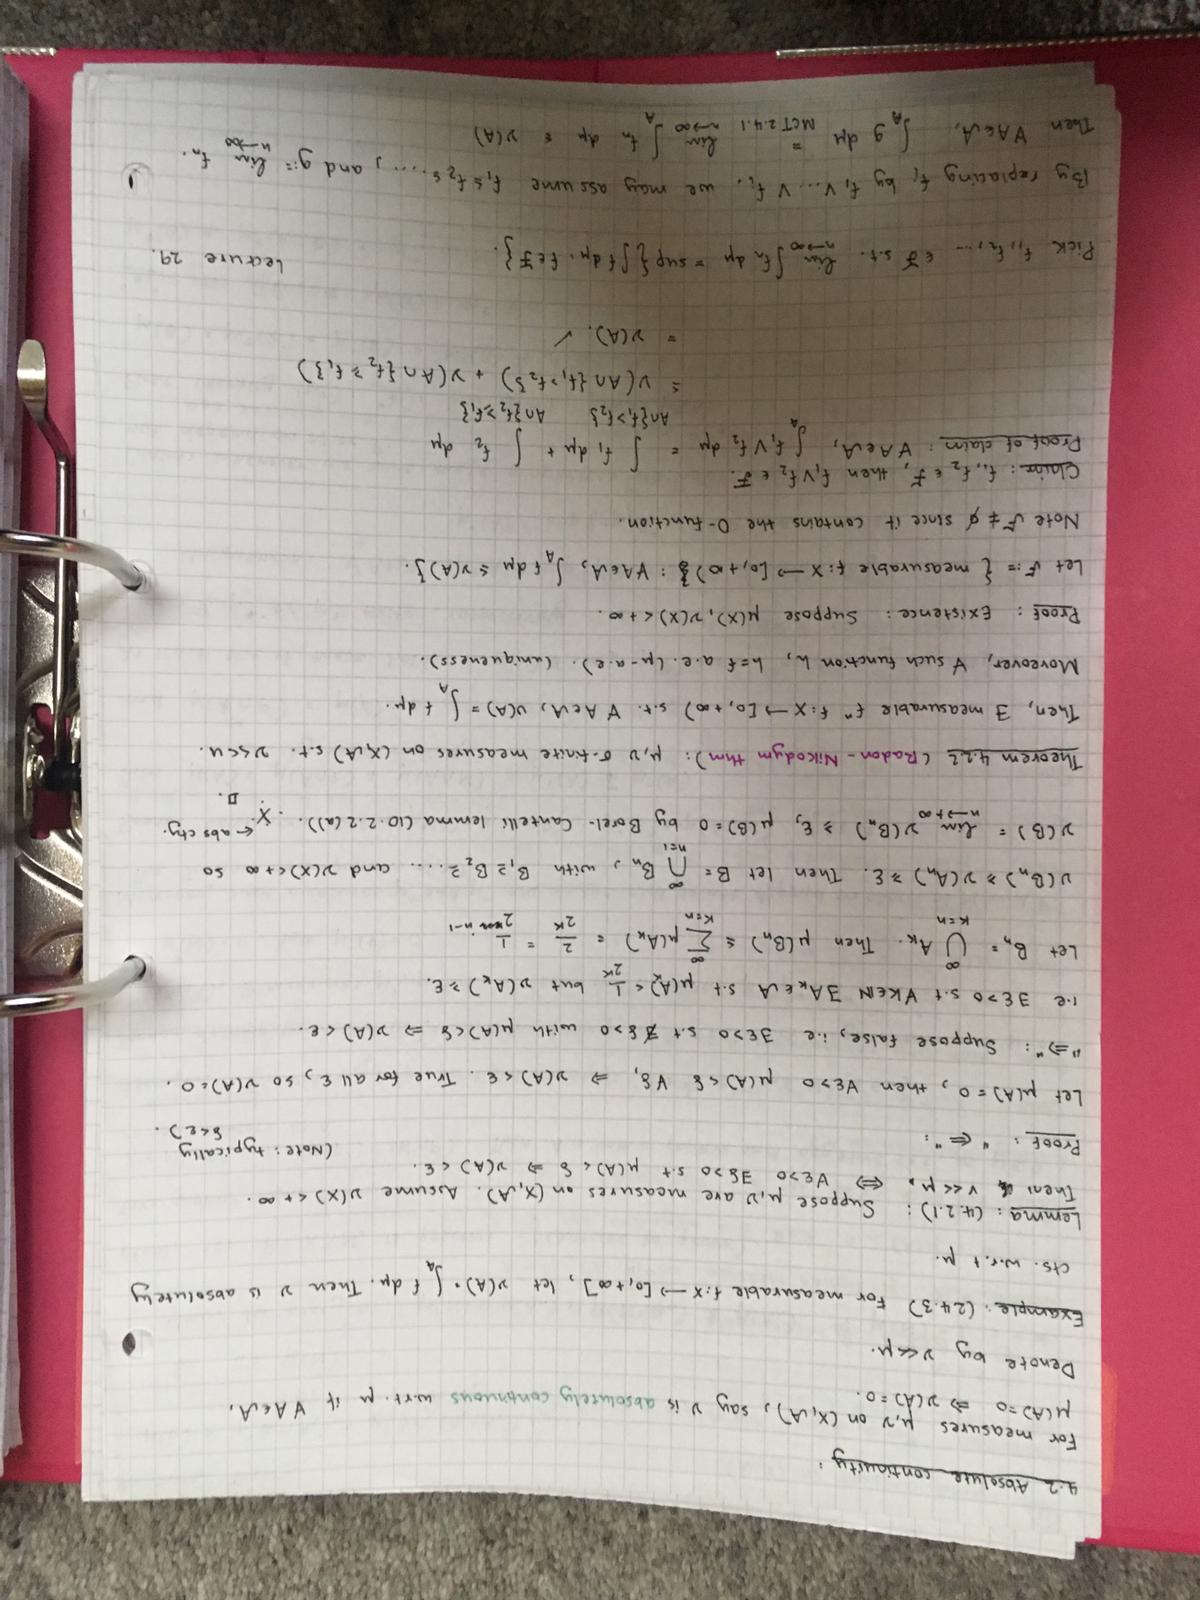 4.2 Absolute continuity:
For measures μ,ν on (X,𝒜), say ν is absolutely continuous w.r.t. μ if ∀A∈𝒜,
μ(A)=0 ⇒ ν(A)=0.
Denote by ν<<μ.
Example: (2.4.3) For measurable f:X→[0,+∞], let ν(A)=∫_A f dμ. Then ν is absolutely
cts. w.r.t μ.
Lemma: (4.2.1): Suppose μ,ν are measures on (X,𝒜). Assume ν(X)<+∞.
Then: ν<<μ. ⇔ ∀ε>0 ∃δ>0 s.t μ(A)<δ ⇒ ν(A)<ε.
(Note: typically
δ<ε).
Proof: "⇐":
Let μ(A)=0, then ∀ε>0 μ(A)<δ ∀δ, ⇒ ν(A)<ε. True for all ε, so ν(A)=0.
"⇒": Suppose false, i.e ∃ε>0 s.t ∄δ>0 with μ(A)<δ ⇒ ν(A)<ε.
i.e ∃ε>0 s.t ∀k∈ℕ ∃A_k∈𝒜 s.t μ(A_k)<1/2^k but ν(A_k)≥ε.
Let B_n = ⋃_{k=n}^∞ A_k. Then μ(B_n) ≤ ∑_{k=n}^∞ μ(A_k) = 2/2^k = 1/2^{n-1}
ν(B_n)≥ν(A_n)≥ε. Then let B=⋂_{n=1}^∞ B_n, with B_1⊇B_2⊇.... and ν(X)<+∞ so
ν(B) = lim_{n→+∞} ν(B_n) ≥ ε, μ(B)=0 by Borel-Cantelli lemma (10.2.2(a)). ※ ← abs cty.
□.
Theorem 4.2.2 (Radon-Nikodym thm): μ,ν σ-finite measures on (X,𝒜) s.t. ν<<μ.
Then, ∃ measurable fⁿ f:X→[0,+∞) s.t. ∀A∈𝒜, ν(A)=∫_A f dμ.
Moreover, ∀ such function h, h=f a.e. (μ-a.e). (uniqueness).
Proof: Existence: Suppose μ(X),ν(X)<+∞.
Let ℱ:= { measurable f:X→[0,+∞)} : ∀A∈𝒜, ∫_A f dμ ≤ ν(A)}.
Note ℱ≠∅ since it contains the 0-function.
Claim: f_1,f_2 ∈ ℱ, then f_1∨f_2 ∈ ℱ.
Proof of claim: ∀A∈𝒜, ∫_A f_1∨f_2 dμ = ∫_{A∩{f_1>f_2}} f_1 dμ + ∫_{A∩{f_2≥f_1}} f_2 dμ
≤ ν(A∩{f_1>f_2}) + ν(A∩{f_2≥f_1})
= ν(A). ✓
Lecture 29.
Pick f_1,f_2,... ∈ℱ s.t. lim_{n→∞} ∫f_n dμ = sup{∫f dμ : f∈ℱ}.
By replacing f_i by f_1∨...∨f_i, we may assume f_1≤f_2≤...., and g:=lim_{n→∞} f_n.
Then ∀A∈𝒜, ∫_A g dμ = MCT 2.4.1 lim_{n→∞} ∫_A f_n dμ ≤ ν(A)